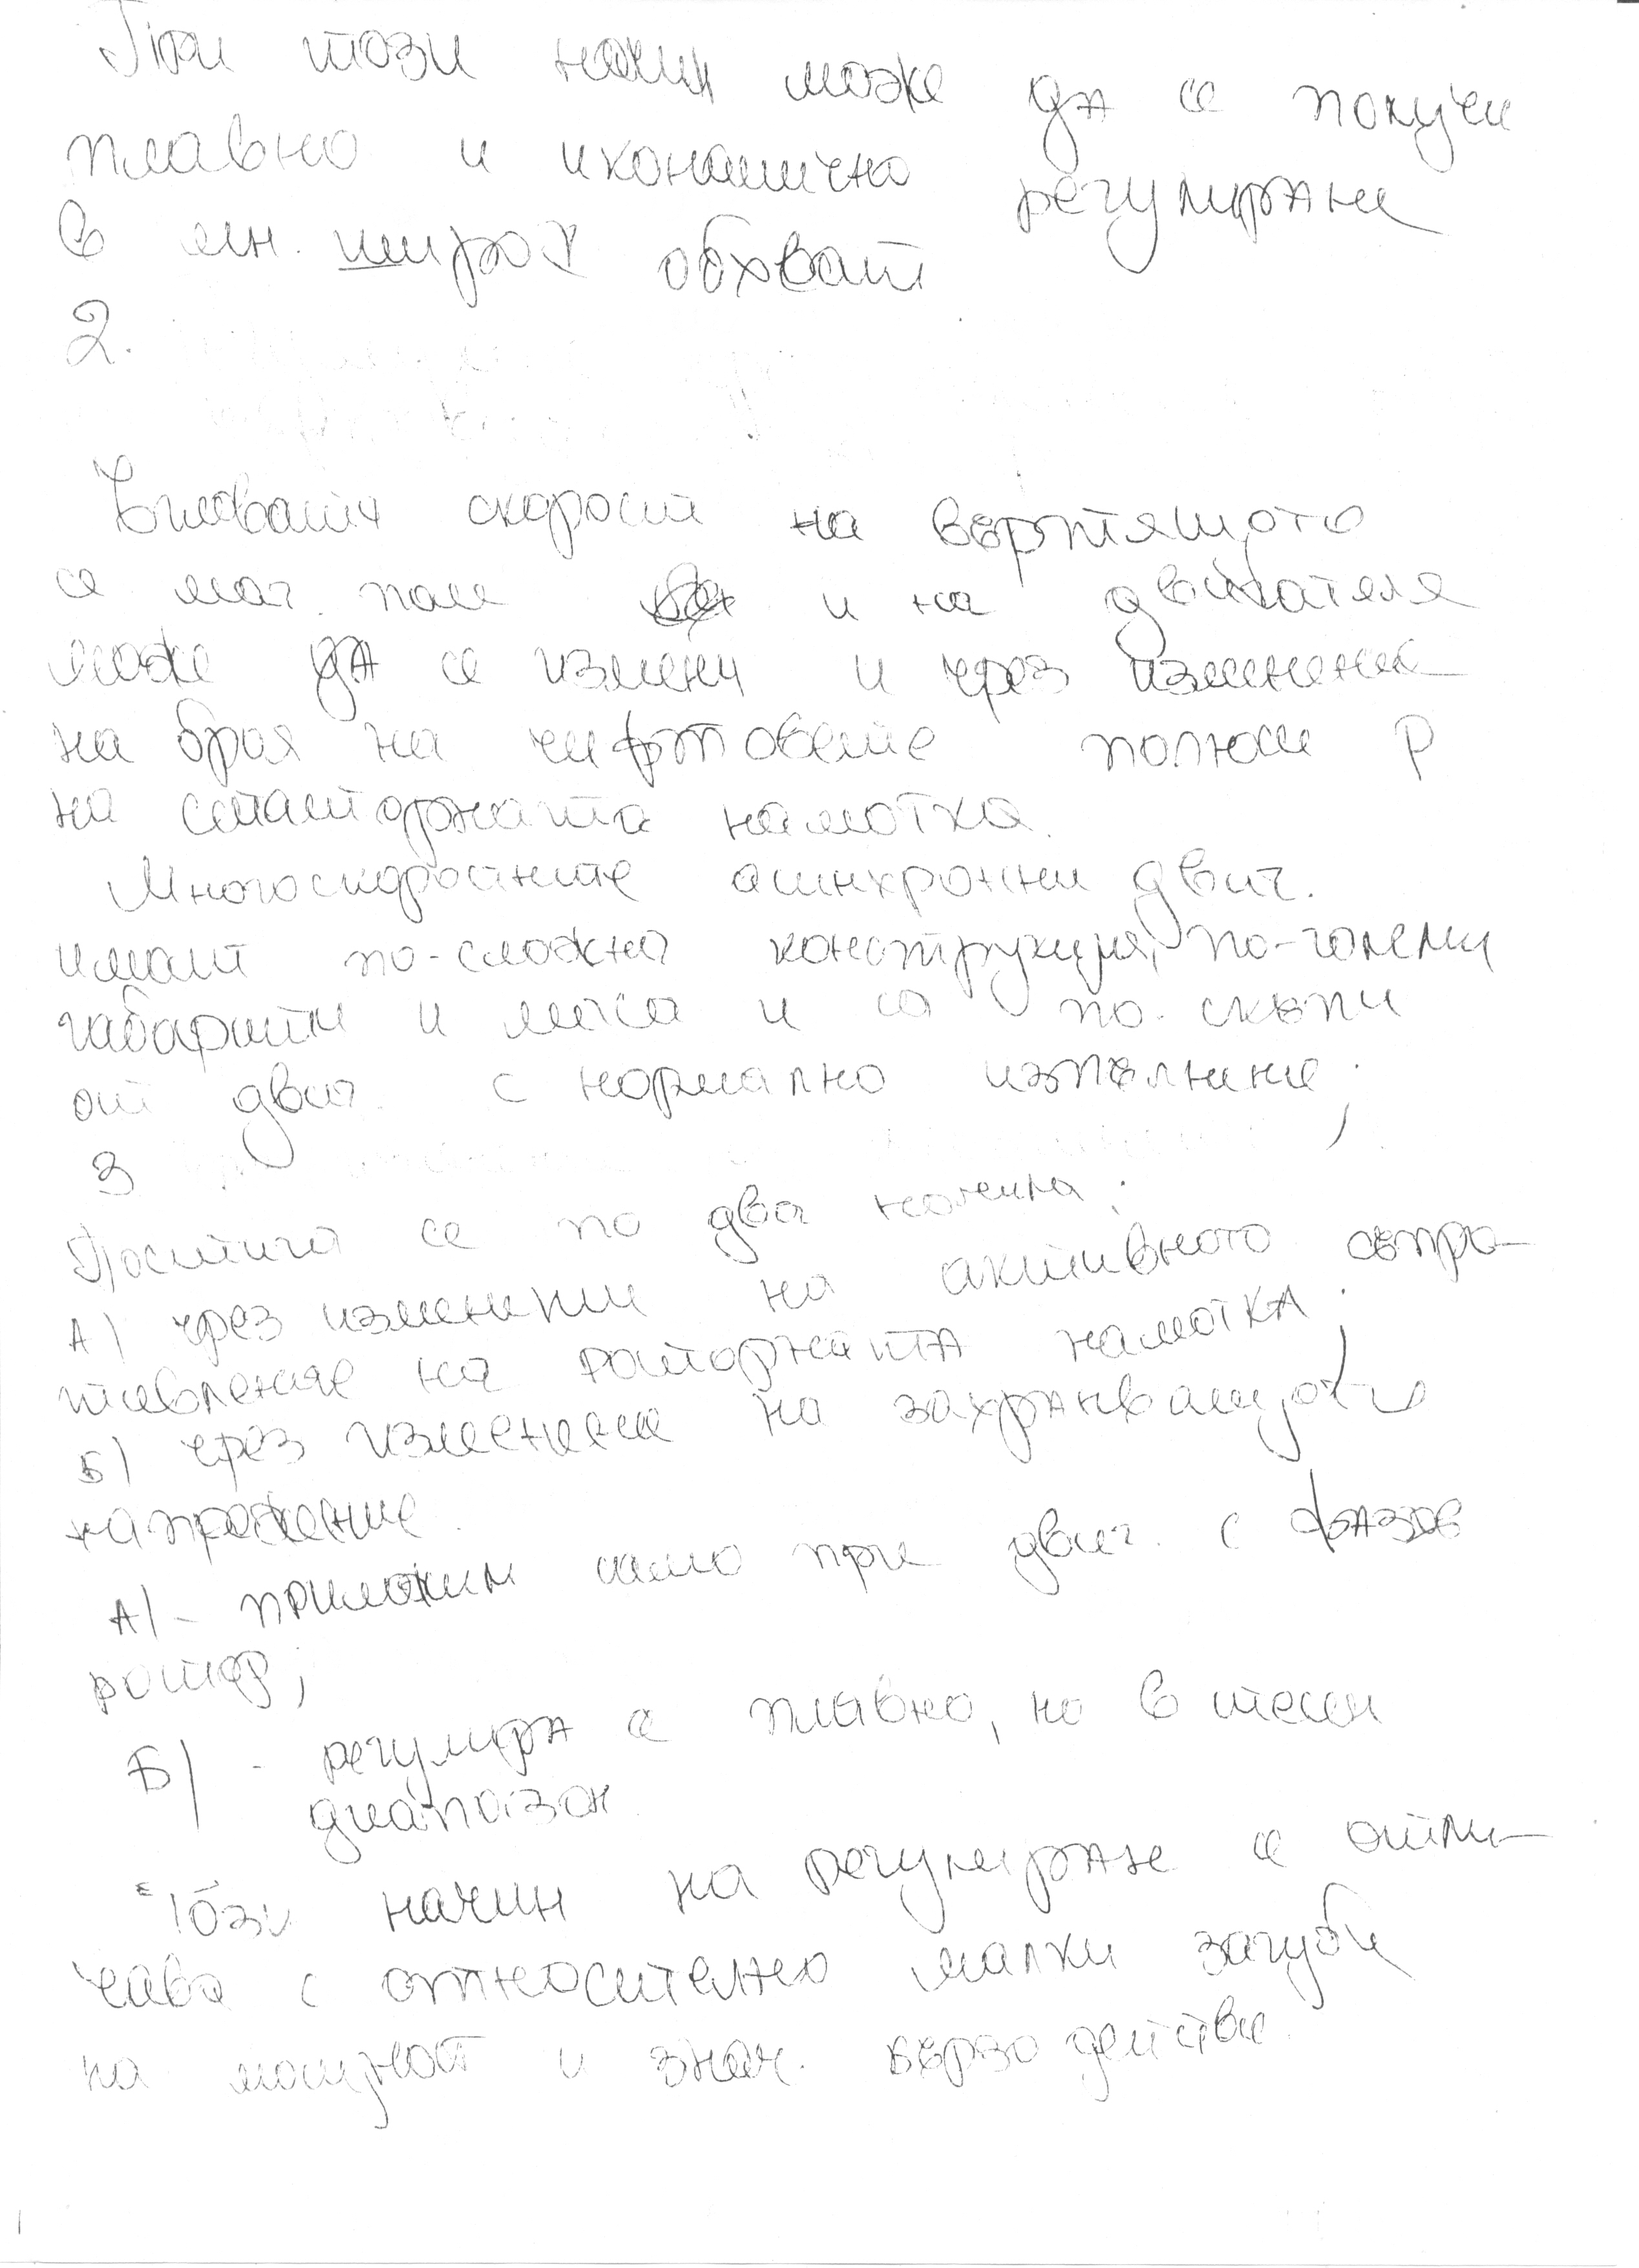 При този начин може да се получи
плавно и икономично регулиране
в мн. широк обхват
2.
Ъгловата скорост на въртящото
се маг. поле и на двигателя
може да се измени и чрез изменение
на броя на чифтовете полюси р
на статорната намотка.
Многоскоростните асинхронни двиг.
имат по-сложна конструкция, по-големи
габарити и маса и са по-скъпи
от двиг. с нормално изпълнение;
3
Постига се по два начина:
А) чрез изменение на активното съпро-
тивление на роторната намотка;
Б) чрез изменение на захранващото
напрежение.
А) - приложим само при двиг. с фазов
ротор;
Б) - регулира се плавно, но в тесен
диапазон.
Този начин на регулиране се отли-
чава с относително малки загуби
на мощност и знач. бързодействие.